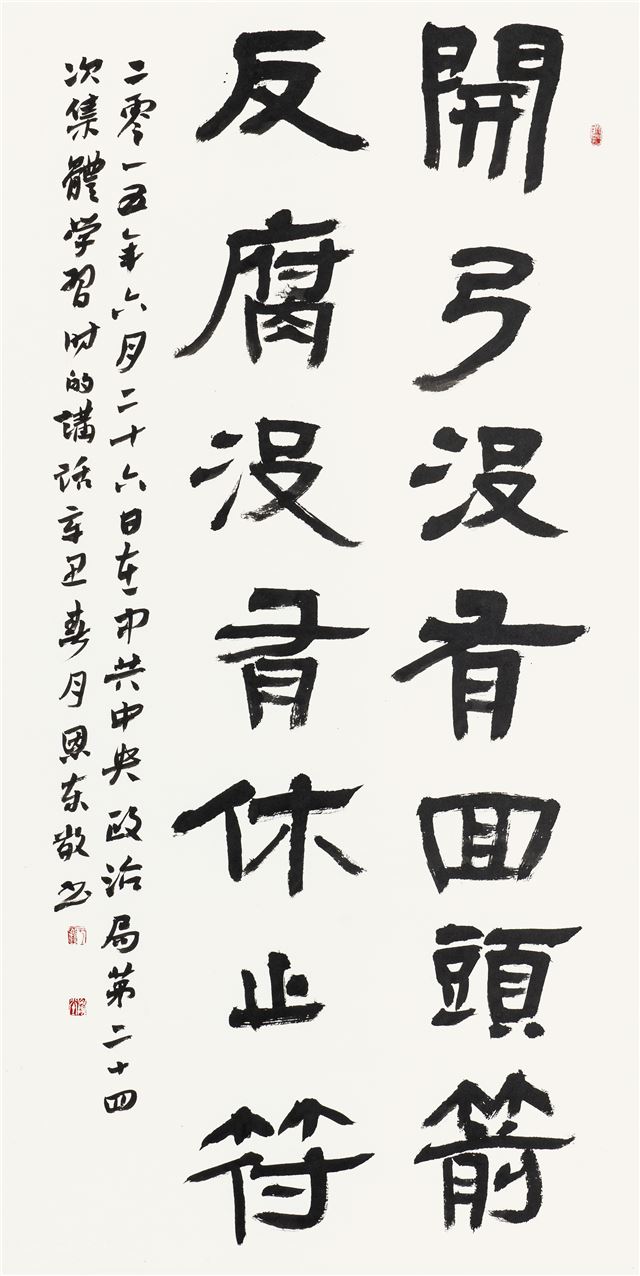 開弓没有回頭箭
反腐没有休止符
二零一五年六月二十六日在中共中央政治局第二十四
次集體学習时的講話辛丑春月恩东敬书